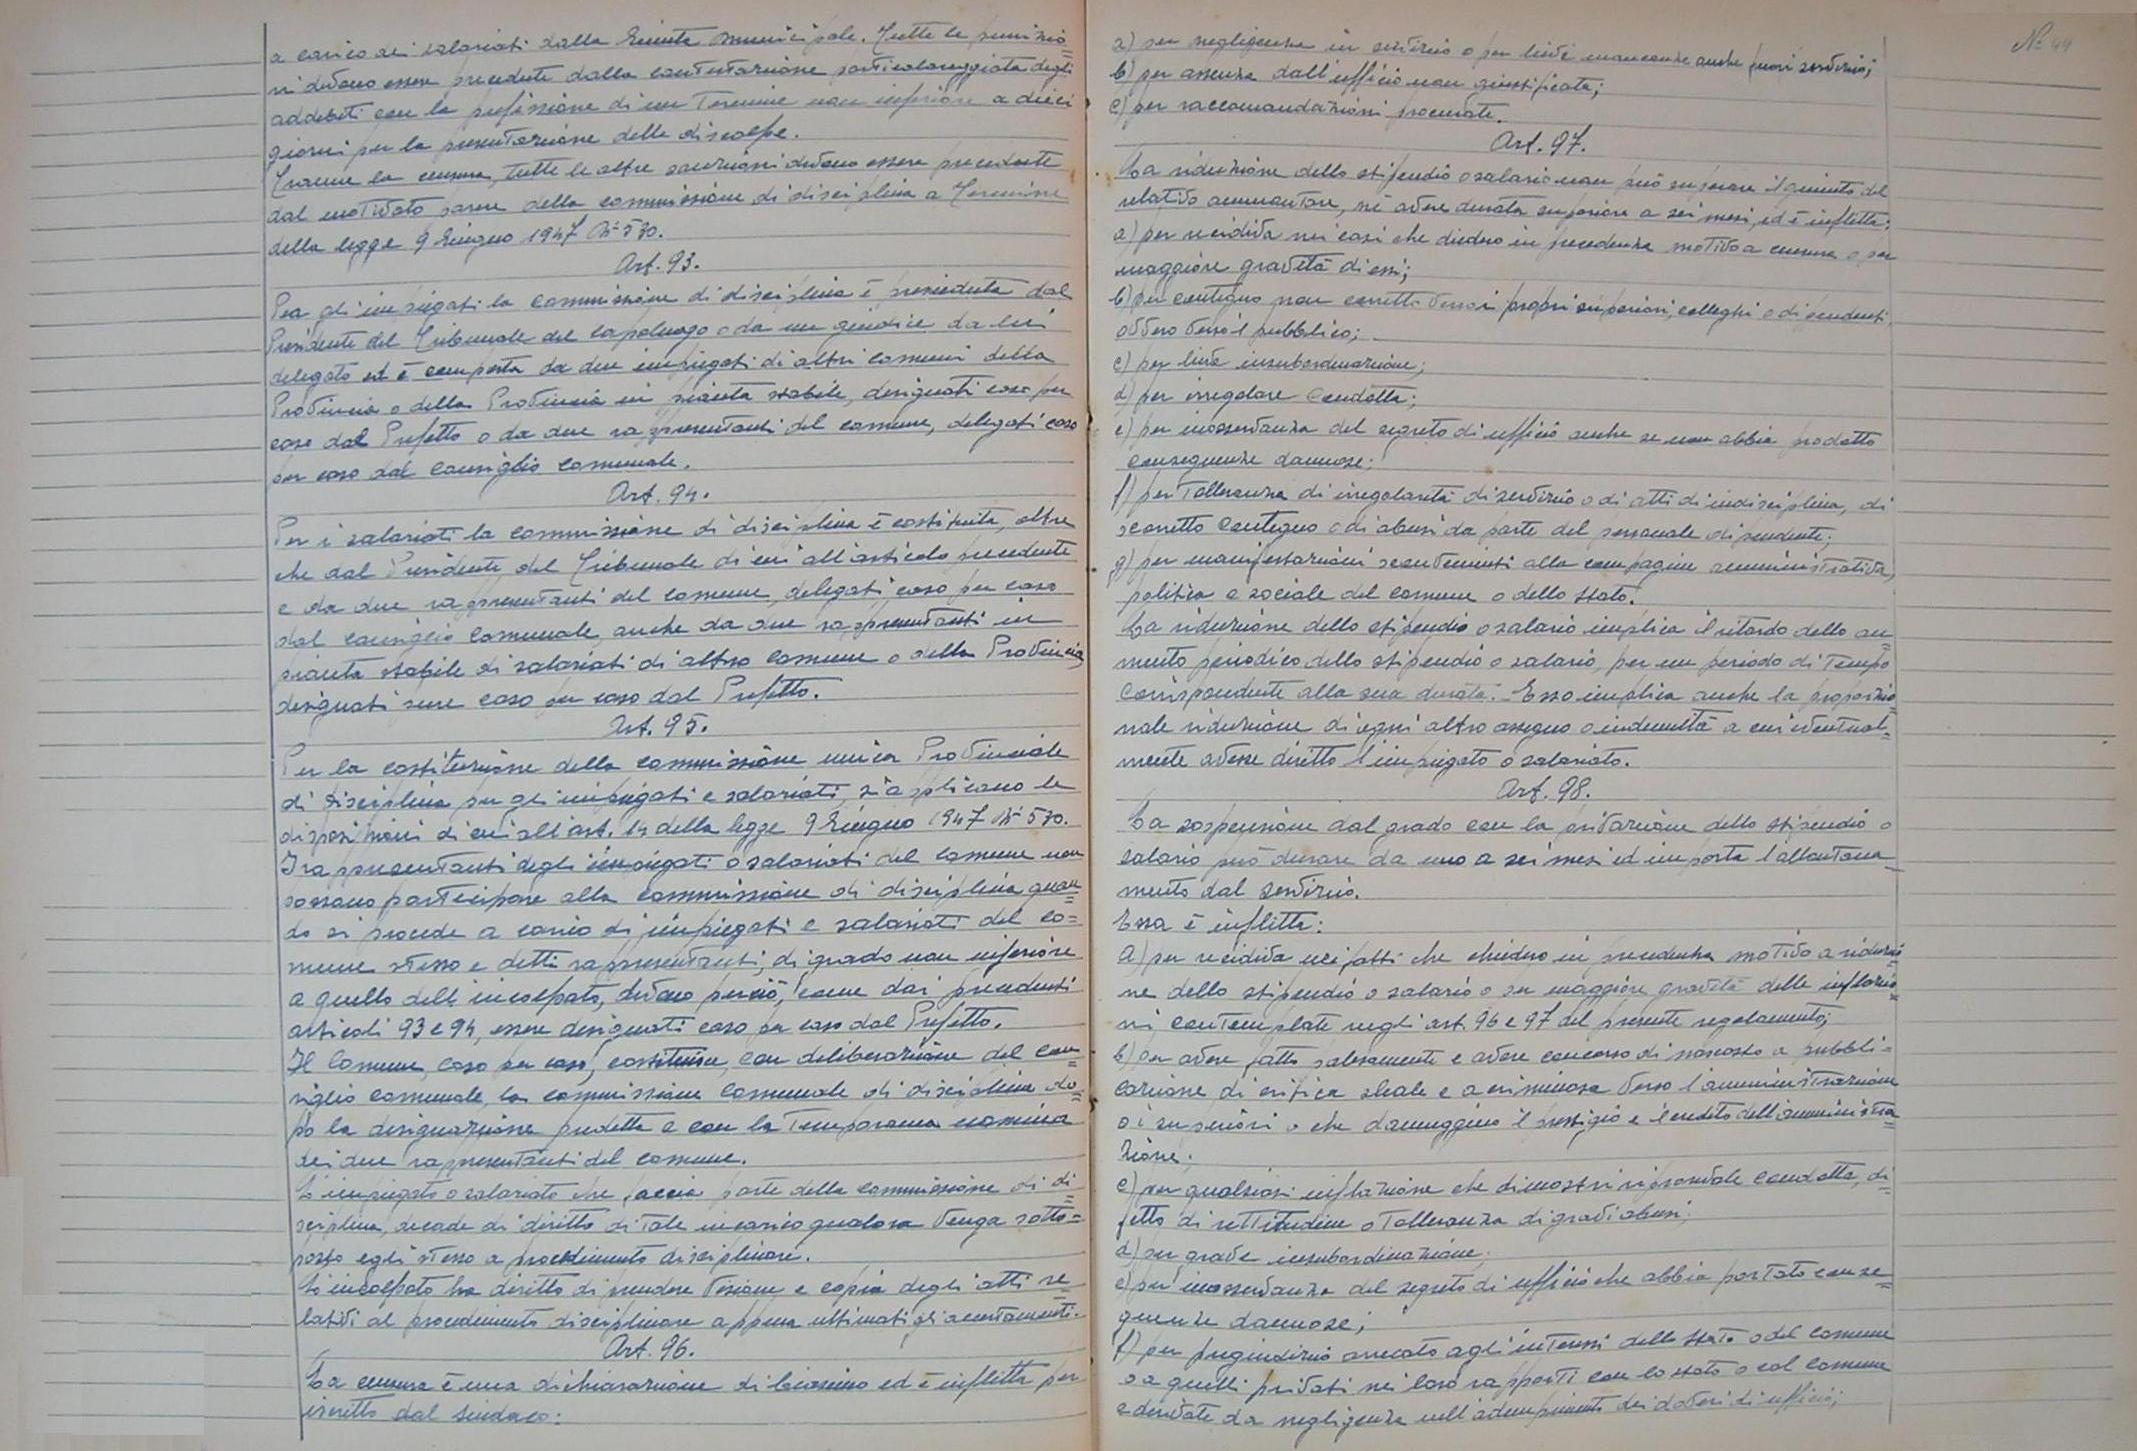 a carico dei salariati dalla Giunta Municipale. Tutte le punizio=
ni devono essere precedute dalla contestazione particolareggiata degli
addebiti con la prefissione di un termine non inferiore a dieci
giorni per la presentazione delle discolpe.
Tranne la censura, tutte le altre sanzioni devono essere precedute
dal motivato parere della commissione di disciplina a termine
della legge 9 Giugno 1947 N° 530.
Art. 93.
Per gli impiegati la commissione di disciplina è presieduta dal
Presidente del Tribunale del capoluogo o da un giudice da lui
delegato ed è composta da due impiegati di altri comuni della
Provincia o della Provincia in pianta stabile, designati caso per
caso dal Prefetto o da due rappresentanti del comune, delegati caso
per caso dal consiglio comunale.
Art. 94.
Per i salariati la commissione di disciplina è costituita, oltre
che dal Presidente del Tribunale di cui all'articolo precedente
e da due rappresentanti del comune, delegati caso per caso
dal consiglio comunale, anche da due rappresentanti in
pianta stabile di salariati di altro comune o della Provincia,
designati pure caso per caso dal Prefetto.
Art. 95.
Per la costituzione della commissione unica Provinciale
di disciplina per gli impiegati e salariati, si applicano le
disposizioni di cui all'art. 14 della legge 9 Giugno 1947 N° 530.
I rappresentanti degli impiegati o salariati del comune non
possono partecipare alla commissione di disciplina quan=
do si procede a carico di impiegati e salariati del co=
mune stesso e detti rappresentanti, di grado non inferiore
a quello dell'incolpato, devono perciò, come dai precedenti
articoli 93 e 94, essere designati caso per caso dal Prefetto.
Il Comune, caso per caso, costituisce, con deliberazione del con=
siglio comunale, la commissione comunale di disciplina do=
po la designazione predetta e con la temporanea nomina
dei due rappresentanti del comune.
L'impiegato o salariato che faccia parte della commissione di di=
sciplina, decade di diritto di tale incarico qualora venga sotto=
posto egli stesso a procedimento disciplinare.
L'incolpato ha diritto di prendere visione e copia degli atti re=
lativi al procedimento disciplinare appena ultimati gli accertamenti.
Art. 96.
La censura è una dichiarazione di biasimo ed è inflitta per
iscritto dal Sindaco:
N° 44
a) per negligenza in servizio o per lievi mancanze anche fuori servizio;
b) per assenza dall'ufficio non giustificata;
c) per raccomandazioni procurate.
Art. 97.
La riduzione dello stipendio o salario non può superare il quinto del
relativo ammontare, nè avere durata superiore a sei mesi, ed è inflitta:
a) per recidiva nei casi che diedero in precedenza motivo a censura o per
maggiore gravità di essi;
b) per contegno non corretto verso i propri superiori, colleghi o dipendenti,
ovvero verso il pubblico;
c) per lieve insubordinazione;
d) per irregolare condotta;
e) per inosservanza del segreto di ufficio anche se non abbia prodotto
conseguenze dannose;
f) per tolleranza di irregolarità di servizio o di atti di indisciplina, di
scorretto contegno o di abusi da parte del personale dipendente;
g) per manifestazioni sconvenienti alla compagine amministrativa,
politica e sociale del comune o dello stato.
La riduzione dello stipendio o salario implica il ritardo dello au=
mento periodico dello stipendio o salario, per un periodo di tempo
corrispondente alla sua durata. Esso implica anche la proporzio=
nale riduzione di ogni altro assegno o indennità a cui eventual=
mente avesse diritto l'impiegato o salariato.
Art. 98.
La sospensione dal grado con la privazione dello stipendio o
salario può durare da uno a sei mesi ed importa l'allontana=
mento dal servizio.
Essa è inflitta:
a) per recidiva nei fatti che diedero in precedenza motivo a riduzio=
ne dello stipendio o salario o per maggiore gravità delle infrazio=
ni contemplate negli art. 96 e 97 del presente regolamento;
b) per avere fatto palesamente e avere concorso di nascosto a pubbli=
cazione di critica sleale e acrimoniosa verso l'amministrazione
o i superiori o che danneggino il prestigio e il credito dell'amministra=
zione;
c) per qualsiasi infrazione che dimostri riprovevole condotta, di=
fetto di rettitudine o tolleranza di gravi abusi;
d) per grave insubordinazione;
e) per inosservanza del segreto di ufficio che abbia portato conse=
guenze dannose;
f) per pregiudizio arrecato agli interessi dello stato o del comune
o a quelli privati nei loro rapporti con lo stato o col comune
e derivate da negligenza nell'adempimento dei doveri di ufficio;